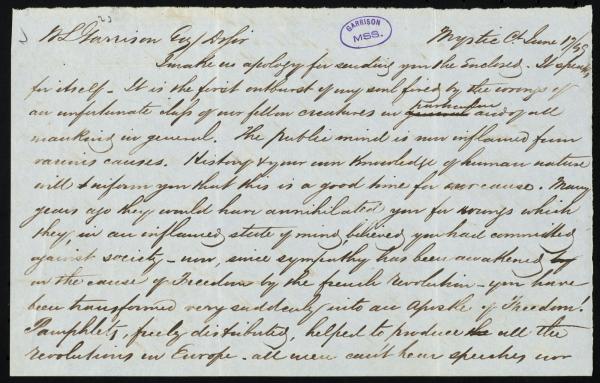 W L Garrison Esq D Sir
GARRISON
MSS.
Mystic Ct June 17/59
I make no apology for sending you the enclosed. It speaks
for itself - It is the first outburst of my soul fired by the wrongs of
an unfortunate class of our fellow creatures in particular and of all
mankind in general. The public mind is now inflamed from
various causes. History & your own knowledge of human nature
will inform you that this is a good time for our cause. Many
years ago they would have annihilated you for wrongs which
they, in an inflamed state of mind, believed you had committed
against society - now, since sympathy has been awakened
in the cause of Freedom by the french revolution - you have
been transformed very suddenly into an Apostle of Freedom!
Pamphlets, freely distributed, helped to produce all the
revolutions in Europe - all men can't hear speeches nor